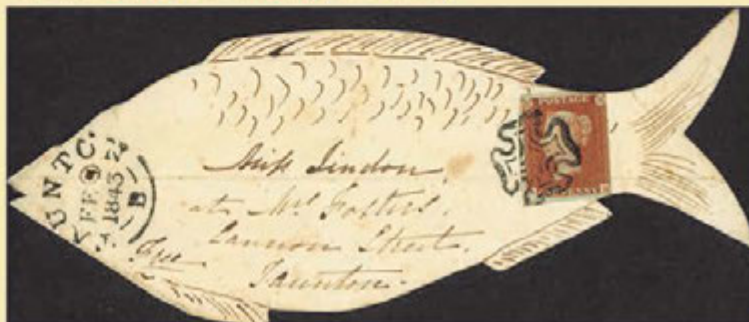 UNTO
FE
1843
B
Miss Lindon
at Mrs Fosters.
Cannon Street.
Taunton.
POSTAGE